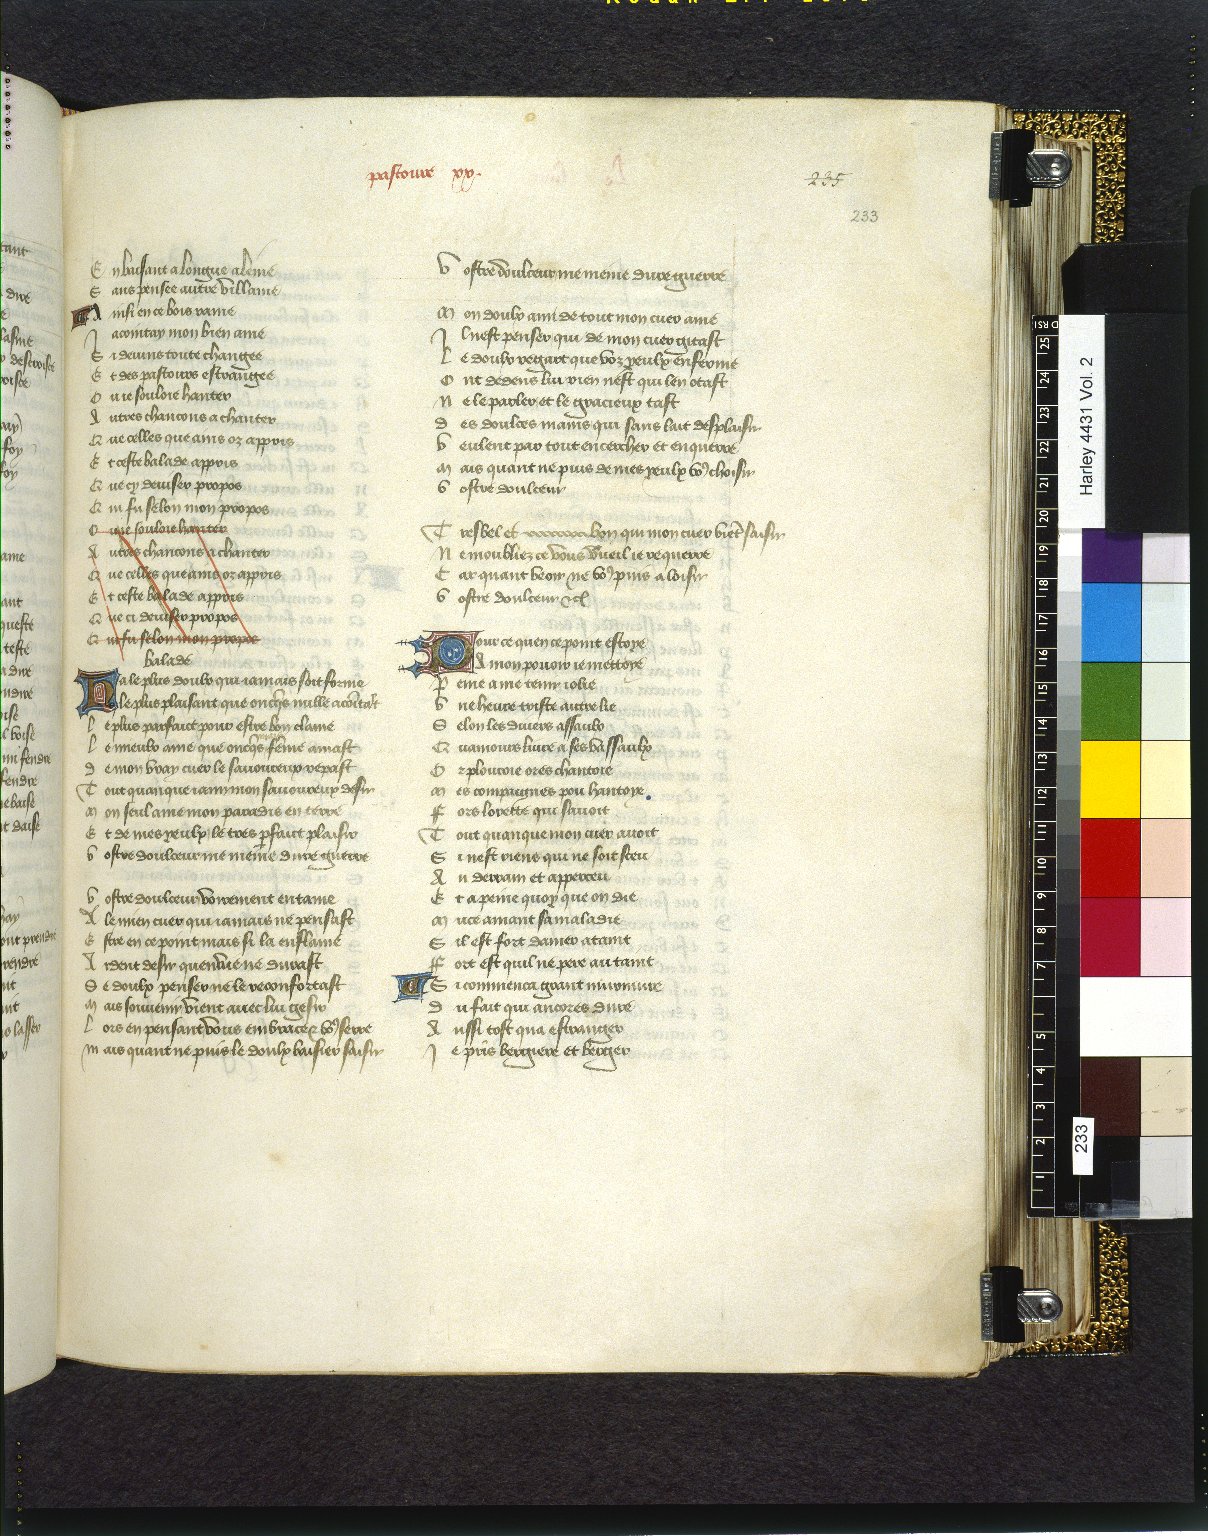 pastoure xx.
235
233
En baisant a longue alenie
Sans pensee autre villanie
Ainsi en ce bois rame
Iacointay mon bien ame
Si deuins toute changee
Et des pastours estrangee
Ou ie souloie hanter
Autres chancons a chanter
Que celles que ains oz appris
Et ceste balade appris
Que cy deuiser propos
Qui fu selon mon propos
Ou ie souloie hanter
Autres chancons a chanter
Que celles que ains oz appris
Et ceste balade appris
Que ci deuiser propos
Qui fu selon mon propos
balade
Ha le plus doulx qui iamais soit forme
Le plus plaisant que oncqs nulle acointast
Le plus parfaict pour estre bon clame
Le mieulx ame que oncqs feme amast
De mon vray cuer le sauoureux repast
Tout quanque iaim mon sauoureux desir
Mon seul ame mon paradis en terre
Et de mes yeulx le tres pfait plaisir
Vostre doulceur me meine dure guerre
Vostre doulceur voirement entame
A le mien cuer qui iamais ne pensast
Estre en ce point mais si la enflame
Ardent desir quen vie ne durast
Se doulx penser ne le reconfortast
Mais souuenir vient auec lui gesir
Lors en pensant vous embrace et vo9 serre
Mais quant ne puis le doulx baisier saisir
Vostre doulceur me meine dure guerre
Mon doulx ami de tout mon cuer ame
Il nest penser qui de mon cuer gitast
Le doulx regart que voz yeulx enferme
Ont dedens lui rien nest qui len ostast
Ne le parler et le gracieux tast
Des doulces mains qui sans lait desplaisir
Veulent par tout encercher et enquerre
Mais quant ne puis de mes yeulx vo9 choisir
Vostre doulceur
Tresbel et bon qui mon cuer vient saisir
Ne moubliez ce vous vueil ie requerre
Car quant veoir ne vo9 puis a loisir
Vostre doulceur &c
Pour ce quen ce point estoye
A mon pouoir ie mettoye
Peine a me tenir iolie
Vne heure triste autre lie
Selon les diuers assaulx
Quamours liure a ses vassaulx
Or plouroie ores chantoie
Mes compaignes pou hantoye
Fors lorette qui sauoit
Tout quanque mon cuer auoit
Si nest riens qui ne soit sceu
An derrain et apperceu
Et a peine quoy que on die
Muce amant sa maladie
Sil est fort damer ataint
Fort est quil ne pere au taint
Si commenca grant murmure
Du fait qui ancores dure
Aussi tost qua estranger
Ie pris bergiere et berger
Harley 4431 Vol. 2
233
25
24
23
22
21
20
19
18
17
16
15
14
13
12
11
10
9
8
7
6
5
4
3
2
1